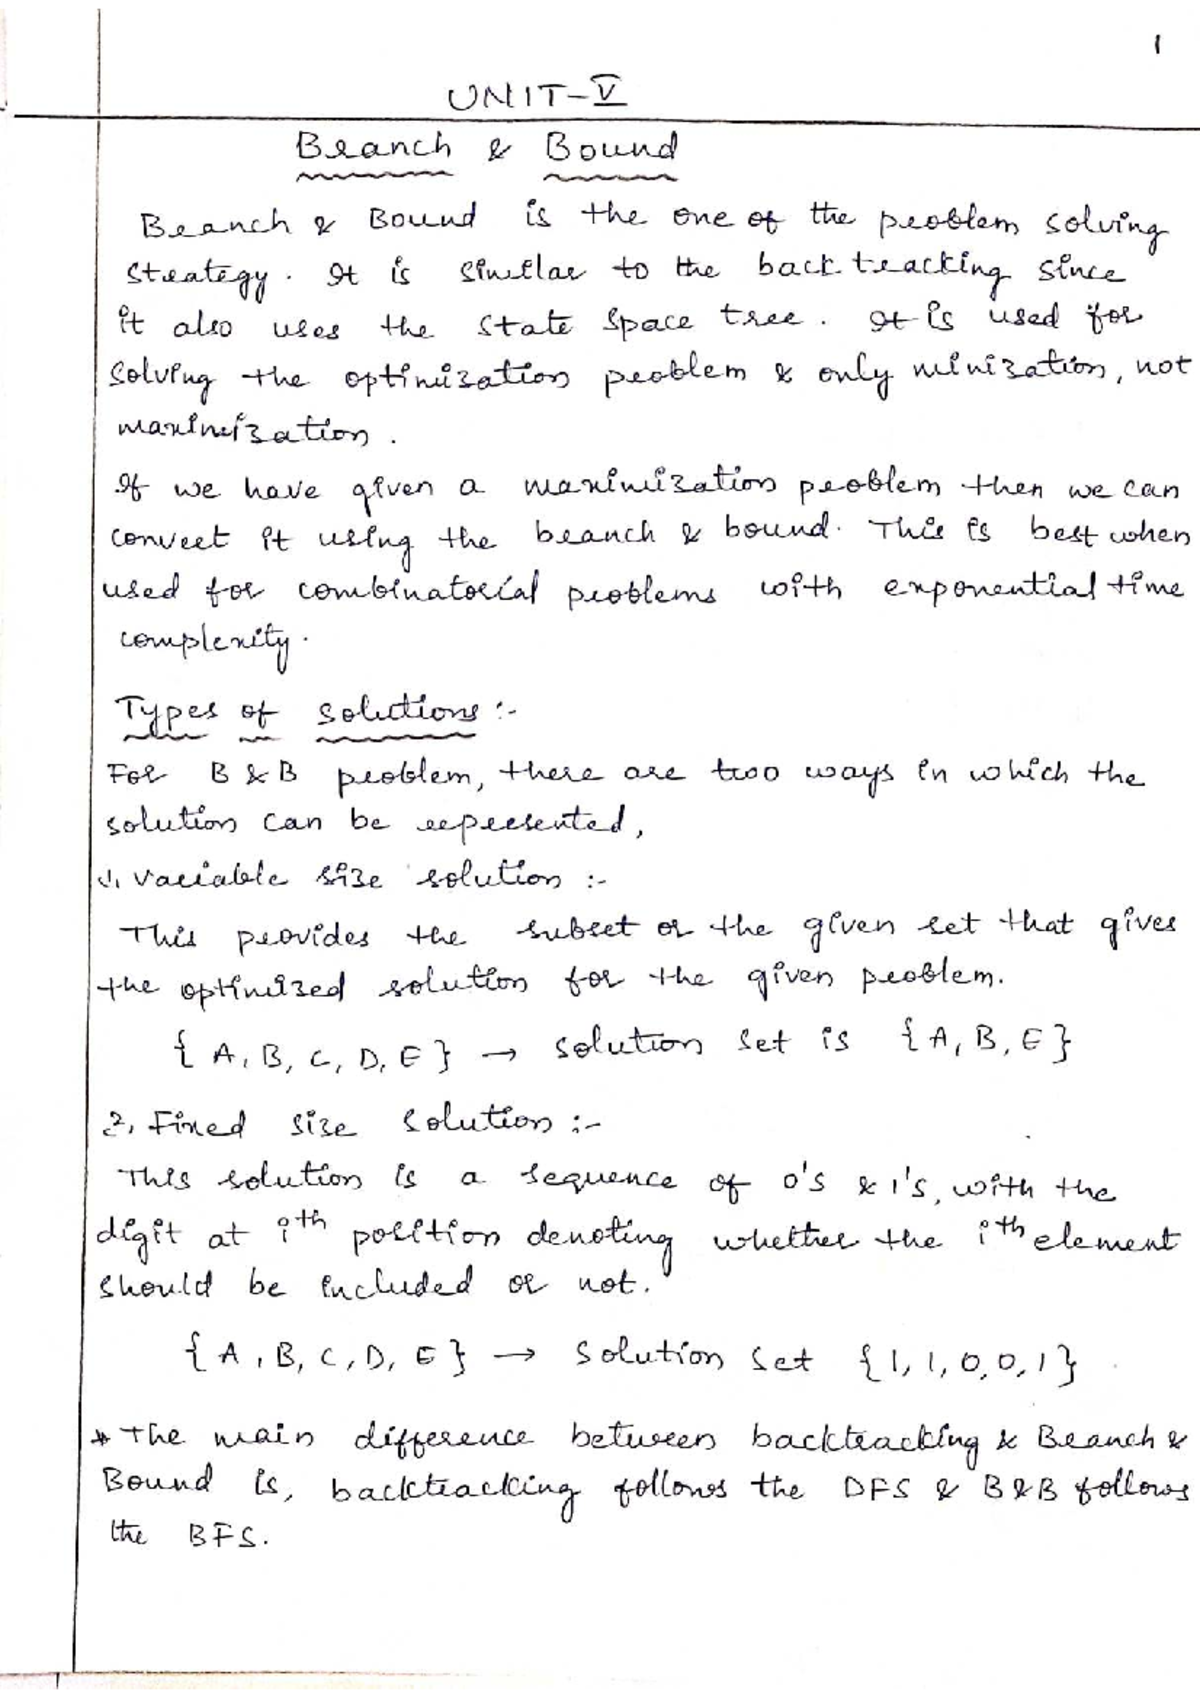 1
UNIT-V
Branch & Bound
Branch & Bound is the one of the problem solving
strategy. It is similar to the back tracking since
it also uses the state space tree. It is used for
solving the optimization problem & only minization, not
maximization.
If we have given a maximization problem then we can
convert it using the branch & bound. This is best when
used for combinatorial problems with exponential time
complexity.
Types of solutions :-
For B & B problem, there are two ways in which the
solution can be represented,
1, Variable size solution :-
This provides the subset or the given set that gives
the optimized solution for the given problem.
{ A, B, C, D, E } → solution set is { A, B, E }
2, Fixed size solution :-
This solution is a sequence of 0's & 1's, with the
digit at ith position denoting whether the ith element
should be included or not.
{ A, B, C, D, E } → solution set { 1, 1, 0, 0, 1 }
* The main difference between backtracking & Branch &
Bound is, backtracking follows the DFS & B & B follows
the BFS.